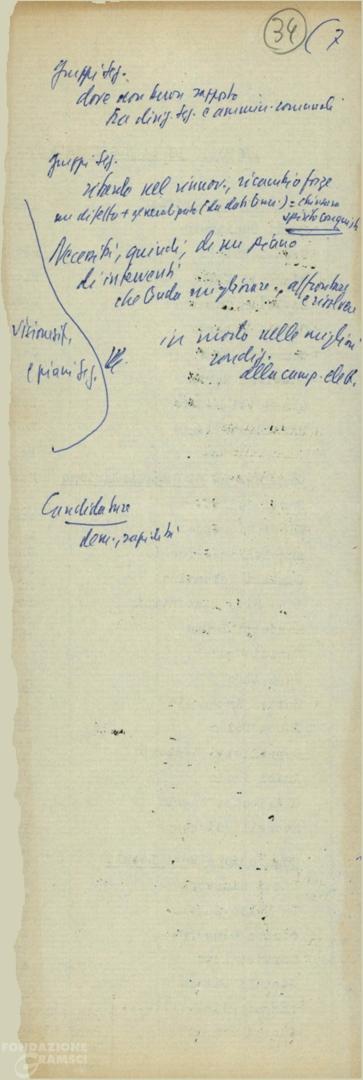 34 (7
Gruppi Seg.
dove non buon rapporto
tra dirig. Seg. e ammin. comunali
Gruppi Seg.
ritardo nel rinnov., ricambio forze
un difetto + generalizzato (da dati Omi.) = chiusura
spirito conquista
Necessità, quindi, di un piano
di interventi
che tenda migliorare, affrontare
e risolvere
Visione sit.
e piani Seg.
in modo nelle migliori
condiz.
alla camp. elett.
Candidatura
dem., rapidità
FONDAZIONE
GRAMSCI